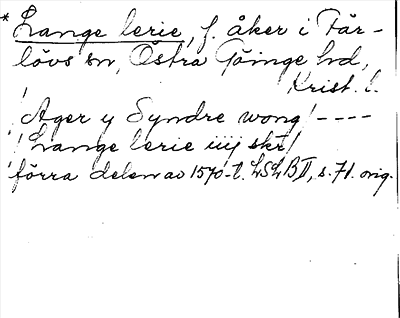 * Lange lerie, f. åker i Fär-
lövs sn, Östra Göinge hd,
Krist. l.
/Ager y Syndre wong/ ----
/Lange lerie iiij skr/
förra delen av 1570-t. LSLB II, s. 71. orig.